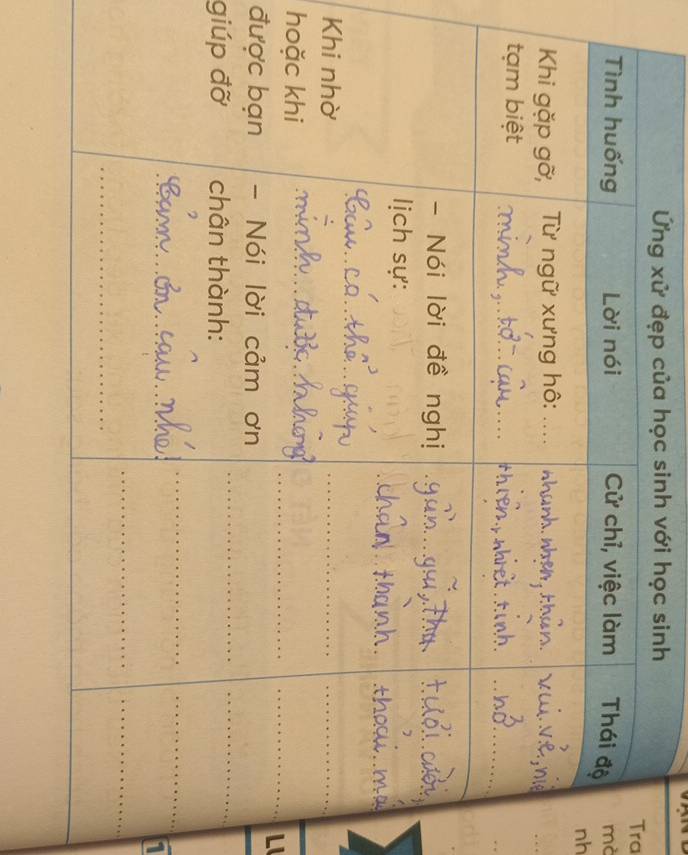 Ứng xử đẹp của học sinh với học sinh
Tình huống Lời nói Cử chỉ, việc làm Thái độ
Khi gặp gỡ, tạm biệt
Từ ngữ xưng hô: ....
mình, tớ - cậu ....
nhanh nhẹn, thân
thiện, nhiệt tình
vui vẻ,
nở
Khi nhờ
hoặc khi
được bạn
giúp đỡ
- Nói lời đề nghị
lịch sự:
Cậu có thể giúp
mình được không?
- Nói lời cảm ơn
chân thành:
Cảm ơn cậu nhé!
gần gũi,
chân thành
tươi cười,
thoải má
Tra
mở
nh
LU
1